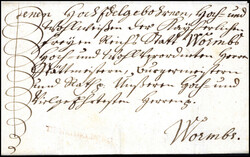 Denen HochEdelgebohrnen, Hoch und
Wohlweisen des Heyl.
freyen Reichs Statt Wormbs
Hoch und Wohlverordneten Herren
Stättmeistern, Burgermeistern
und Rath, Unseren Hoch und
Vielgeehrtesten Herren
Wormbs.